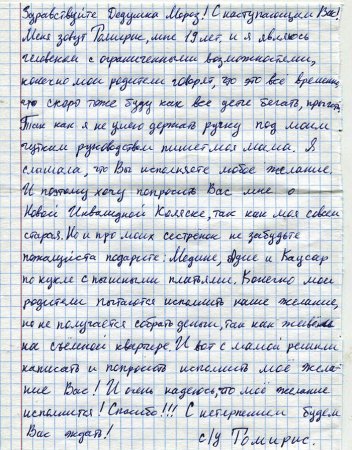 Здравствуйте Дедушка Мороз! С наступающим Вас!
Меня зовут Томирис, мне 19 лет, и я являюсь
человеком с ограниченными возможностями,
конечно мои родители говорят, что это всё временно,
что скоро тоже буду как все дети бегать, прыгать.
Так как я не умею держать ручку под моим
чутким руководством пишет моя мама. Я
слышала, что Вы исполняете любое желание.
И поэтому хочу попросить Вас мне о
Новой Инвалидной Коляске, так как моя совсем
старая. Но и про моих сестренок не забудьте
пожалуйста подарите: Медине, Адие и Каусар
по кукле с пышными платьями. Конечно мои
родители пытаются исполнить наше желание,
но не получается собрать деньги, так как живём
на съемной квартере. И вот с мамой решили
написать и попросить исполнить моё жела-
ние Вас! И очень надеюсь, что моё желание
исполнится! Спасибо!!! С нетерпением будем
Вас ждать! с/у Томирис.